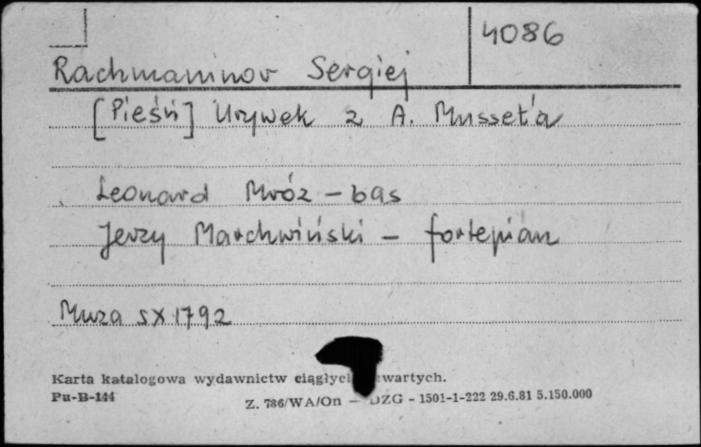 4086
Rachmaninov Sergiej
[Pieśń] Urywek z A. Musset'a
Leonard Mróz - bas
Jerzy Marchwiński - fortepian
Muza SX 1792
Karta katalogowa wydawnictw ciągłych
Pu-B-144
Z. 786/WA/On — DZG - 1501-1-222 29.6.81 5.150.000